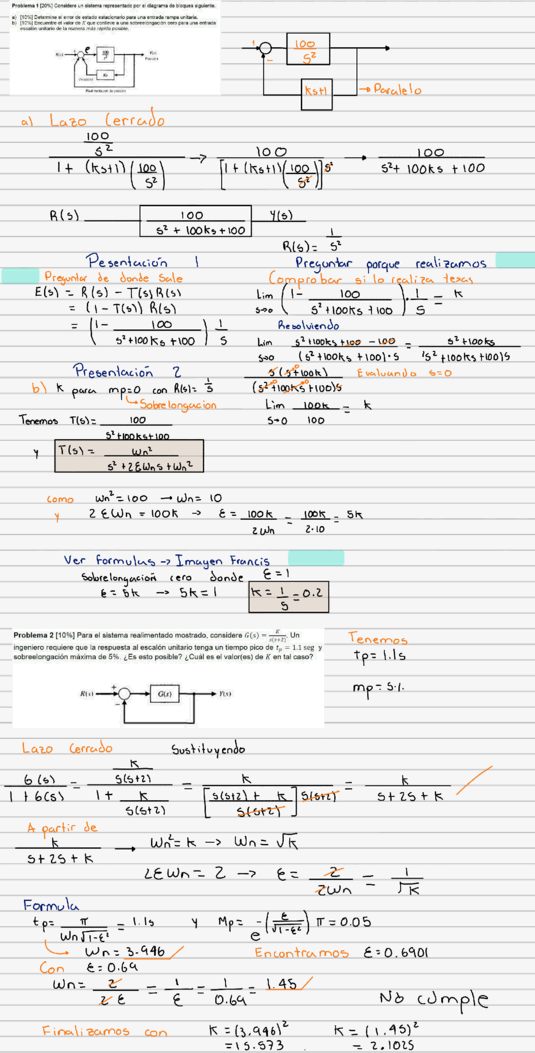 Problema 1 [20%] Considere un sistema representado por el diagrama de bloques siguiente.
a) [10%] Determine el error de estado estacionario para una entrada rampa unitaria.
b) [10%] Encuentre el valor de K que conlleve a una sobreelongación cero para una entrada escalón unitario de la manera más rápida posible.
1
100
S²
ks+1 → Paralelo
a) Lazo Cerrado
100/S² / 1 + (ks+1)(100/S²) → 100 / [1 + (ks+1)(100/S²)]S² → 100 / S² + 100ks + 100
R(s) 100 / S² + 100ks + 100 Y(s)
R(s) = 1/S²
Pesentación 1
Preguntar porque realizamos
Preguntar de donde Sale
Comprobar si lo realiza texas
E(s) = R(s) - T(s) R(s)
= (1 - T(s)) R(s)
= (1 - 100 / S² + 100ks + 100) 1/S
Lim s→0 (1 - 100 / S² + 100ks + 100) · 1/S = k
Resolviendo
Lim s→0 S² + 100ks + 100 - 100 / (S² + 100ks + 100) · S = S² + 100ks / (S² + 100ks + 100)S
S(S + 100k) / (S² + 100ks + 100)S Evaluando s=0
Lim S→0 100k / 100 = k
Presentación 2
b) k para mp=0 con R(s) = 1/S
Sobrelongacion
Tenemos T(s) = 100 / S² + 100ks + 100
y T(s) = Wn² / S² + 2ξWnS + Wn²
como Wn² = 100 → Wn = 10
y 2ξWn = 100k → ξ = 100k / 2Wn = 100k / 2·10 = 5k
Ver formulas → Imagen Francis
Sobrelongación cero donde ξ = 1
ξ = 5k → 5k = 1 k = 1/5 = 0.2
Problema 2 [10%] Para el sistema realimentado mostrado, considere G(s) = K / s(s+2). Un
ingeniero requiere que la respuesta al escalón unitario tenga un tiempo pico de tp = 1.1 seg y
sobreelongación máxima de 5%. ¿Es esto posible? ¿Cuál es el valor(es) de K en tal caso?
R(s) + - G(s) Y(s)
Tenemos
tp = 1.1s
mp = 5%
Lazo Cerrado Sustituyendo
G(s) / 1 + G(s) = k/S(S+2) / 1 + k/S(S+2) = k / [S(S+2) + k / S(S+2)] S(S+2) = k / S + 2S + k
A partir de
k / S + 2S + k → Wn² = k → Wn = √k
2ξWn = 2 → ξ = 2 / 2Wn = 1 / √k
Formula
tp = π / Wn√1-ξ² = 1.1s y Mp = e^-(ξ/√1-ξ²)π = 0.05
Wn = 3.946 Encontramos ξ = 0.6901
Con ξ = 0.69
Wn = 2 / 2ξ = 1 / ξ = 1 / 0.69 = 1.45
No cumple
Finalizamos con k = (3.946)² k = (1.45)²
= 15.573 = 2.1025